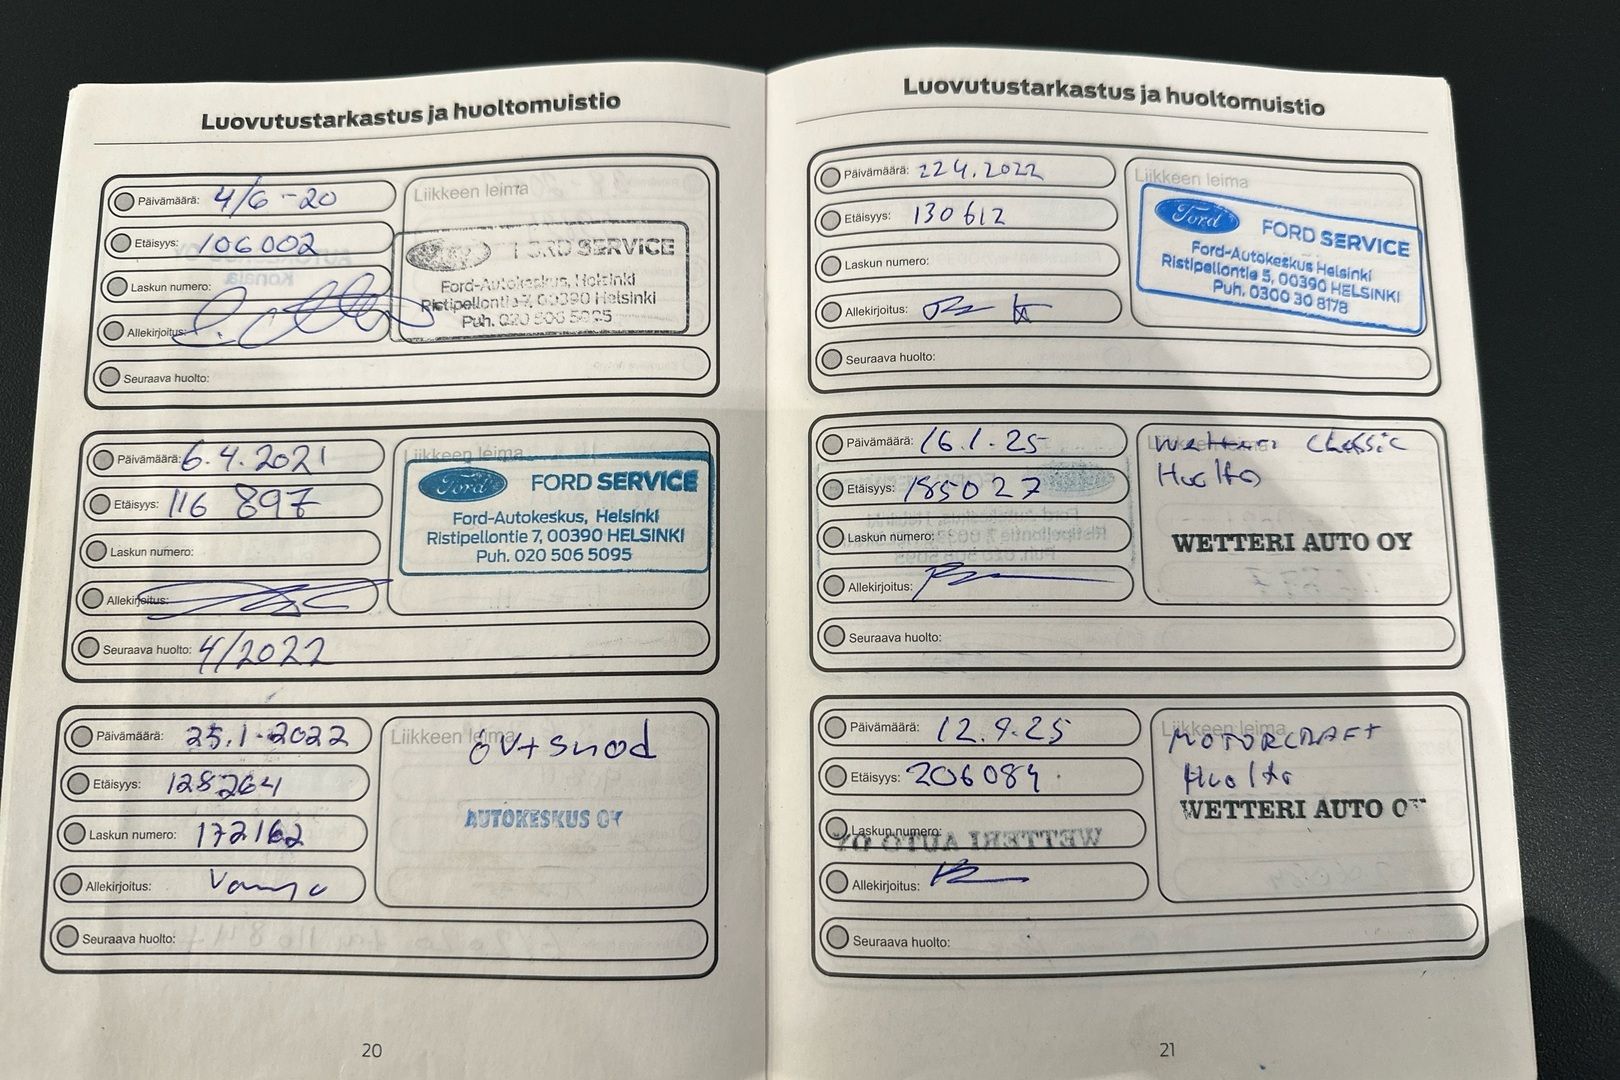 Luovutustarkastus ja huoltomuistio
Päivämäärä: 4/6-20
Etäisyys: 106002
Laskun numero:
Allekirjoitus:
Seuraava huolto:
Liikkeen leima
Ford FORD SERVICE
Ford-Autokeskus, Helsinki
Ristipellontie 7, 00390 Helsinki
Puh. 020 506 5095
Päivämäärä: 6.4.2021
Etäisyys: 116 897
Laskun numero:
Allekirjoitus:
Seuraava huolto: 4/2022
Liikkeen leima
Ford FORD SERVICE
Ford-Autokeskus, Helsinki
Ristipellontie 7, 00390 HELSINKI
Puh. 020 506 5095
Päivämäärä: 25.1.2022
Etäisyys: 128264
Laskun numero: 172162
Allekirjoitus:
Seuraava huolto:
Liikkeen leima
öv+suod
AUTOKESKUS OY
20
Luovutustarkastus ja huoltomuistio
Päivämäärä: 224.2022
Etäisyys: 130612
Laskun numero:
Allekirjoitus:
Seuraava huolto:
Liikkeen leima
Ford FORD SERVICE
Ford-Autokeskus Helsinki
Ristipellontie 5, 00390 HELSINKI
Puh. 0300 30 8178
Päivämäärä: 16.1.25
Etäisyys: 185027
Laskun numero:
Allekirjoitus:
Seuraava huolto:
Liikkeen leima
Wetteri Classic
Huolto
WETTERI AUTO OY
Päivämäärä: 12.9.25
Etäisyys: 206084
Laskun numero:
Allekirjoitus:
Seuraava huolto:
Liikkeen leima
MOTORCRAFT
Huolto
WETTERI AUTO OY
21